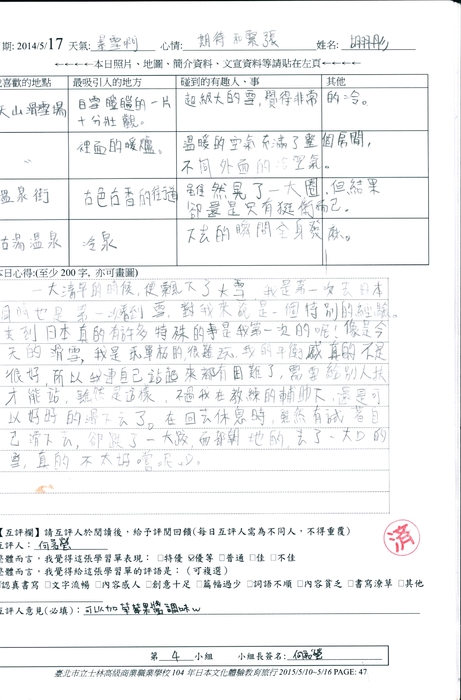 期: 2014/5/17 天氣: 心情: 期待和緊張 姓名:
←←←←本日照片、地圖、簡介資料、文宣資料等請貼在左頁←←←←
喜歡的地點 最吸引人的地方 碰到的有趣人、事 其他
天山滑雪場 白雪皚皚的一片 超級大的雪,覺得非常的冷。
十分壯觀。
〃 裡面的暖爐。 溫暖的空氣充滿了整個房間,
不同外面的冷空氣。
溫泉街 古色古香的街道 雖然晃了一大圈,但結果
卻還是只有逛街而已。
湯溫泉 冷泉 下去的瞬間全身發麻。
本日心得:(至少 200 字, 亦可畫圖)
一大清早的時候,便飄下了大雪,我是第一次去日本
同時也是第一次看到雪,對我來說是一個特別的經驗。
來到日本真的有許多特殊的事是我第一次的呢!像是今
天的滑雪,我是 的很難 ,我的平衡感真的不是
很好,所以我連自己站起來都有困難了,需要別人扶
才能站,雖然是這樣,不過我在教練的輔助下,還是可
以好好的滑下去了。在回去休息時,雖然有試著自
己滑下去,卻跌了一大跤,面部朝地的,吃了一大口的
雪,真的不太好嚐呢:D。
【互評欄】請互評人於閱讀後,給予評閱回饋(每日互評人需為不同人,不得重覆)
互評人:
整體而言,我覺得這張學習單表現:□特優 ☑優等 □普通 □佳 □不佳
整體而言,我覺得給這張學習單的評語是:(可複選)
認真書寫 □文字流暢 □內容感人 □創意十足 □篇幅過少 □詞語不順 □內容貧乏 □書寫潦草 □其他
互評人意見(必填): 可以加草莓果醬調味w
済
第 4 小組 小組長簽名:
臺北市立士林高級商業職業學校 104 年日本文化體驗教育旅行 2015/5/10~5/16 PAGE: 47